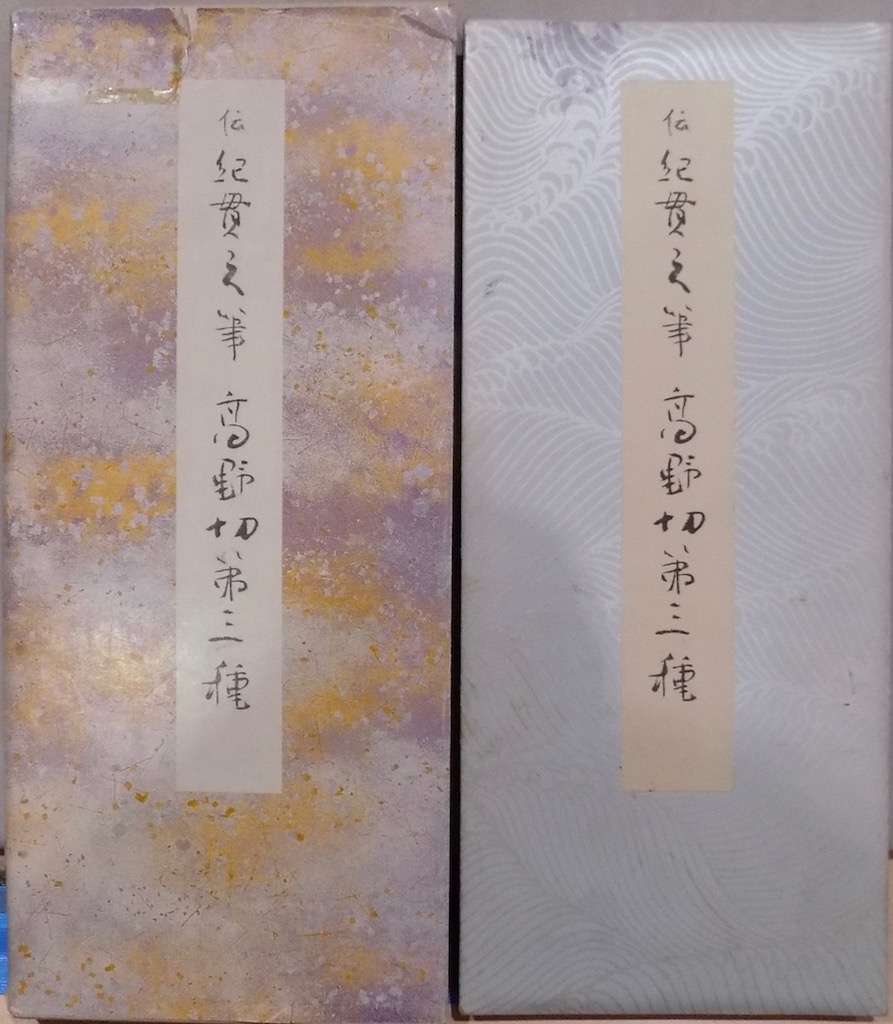 伝 紀貫之筆 高野切第三種
伝 紀貫之筆 高野切第三種